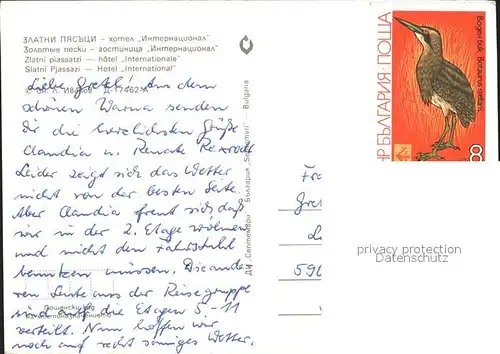 ЗЛАТНИ ПЯСЪЦИ – хотел „Интернационал"
Золотые пески – гостиница „Интернационал"
Zlatni piassatzi – hôtel „Internationale"
Slatni Pjassazi – Hotel „International"
Liebe Gretel! Aus dem
schönen Warna senden
Dir die herzlichsten Grüße
Claudia u. Renate
Leider zeigt sich das Wetter
nicht von der besten Seite.
Aber Claudia freut sich, daß
wir in der 2. Etage wohnen
und nicht den Fahrstuhl
benutzen müssen. Die ande-
ren Leute aus der Reisegruppe
sind auf die Etagen 5.-11
verteilt. Nun hoffen wir
noch auf recht sonniges Wetter.
ДП „Септември" – България „Septemvri" – Bulgaria
НР БЪЛГАРИЯ·ПОЩА
Воден бик Botaurus stellaris
8
Fra
Gre
590
privacy protection
Datenschutz